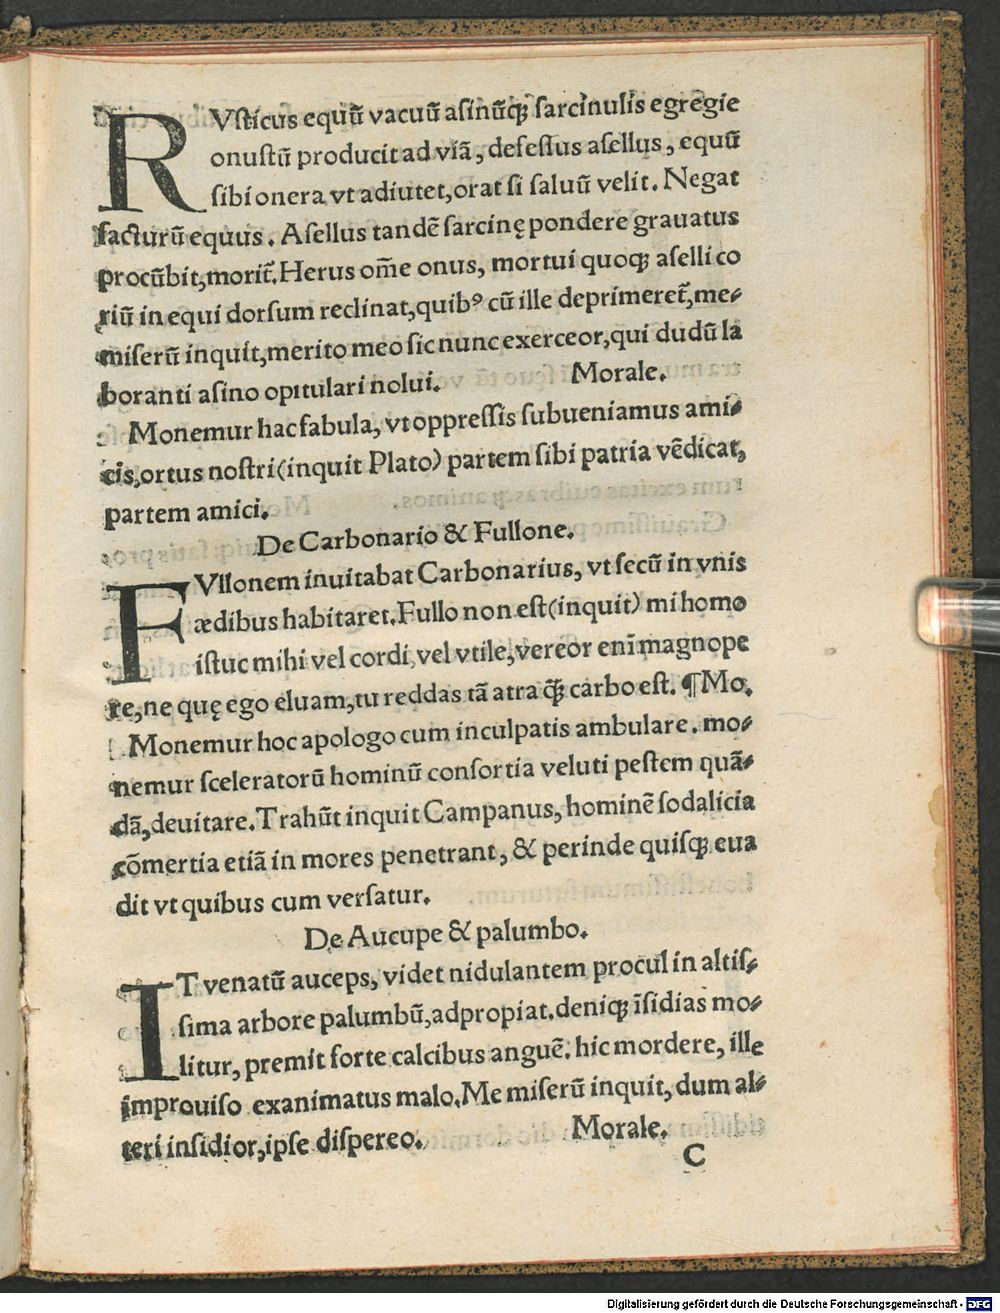 RVsticus equũ vacuũ asinũqꝫ sarcinulis egregie
onustũ producit ad viã, defessus asellus, equũ
sibi onera vt adiutet, orat si saluũ velit. Negat
facturũ equus. Asellus tandẽ sarcinę pondere grauatus
procũbit, morit̃. Herus om̃e onus, mortui quoqꝫ aselli co
riũ in equi dorsum reclinat, quibꝰ cũ ille deprimeret̃, me⸗
miserũ inquit, merito meo sic nunc exerceor, qui dudũ la
boranti asino opitulari nolui. Morale.
Monemur hac fabula, vt oppressis subueniamus ami⸗
cis, ortus nostri (inquit Plato) partem sibi patria vẽdicat,
partem amici.
De Carbonario & Fullone.
FVllonem inuitabat Carbonarius, vt secũ in vnis
ædibus habitaret. Fullo non est (inquit) mi homo
istuc mihi vel cordi, vel vtile, vereor eni᷈ magnope
re, ne quę ego eluam, tu reddas tã atra qꝫ̃ carbo est. ¶ Mo.
Monemur hoc apologo cum inculpatis ambulare. mo⸗
nemur sceleratorũ hominũ consortia veluti pestem quã⸗
dã, deuitare. Trahũt inquit Campanus, hominẽ sodalicia
cõmertia etiã in mores penetrant, & perinde quisqꝫ eua
dit vt quibus cum versatur.
De Aucupe & palumbo.
IT venatũ auceps, videt nidulantem procul in altis⸗
sima arbore palumbũ, adpropiat. deniqꝫ ĩsidias mo⸗
litur, premit forte calcibus anguẽ. hic mordere, ille
improuiso exanimatus malo. Me miserũ inquit, dum al⸗
teri insidior, ipse dispereo. Morale.
C
Digitalisierung gefördert durch die Deutsche Forschungsgemeinschaft - DFG